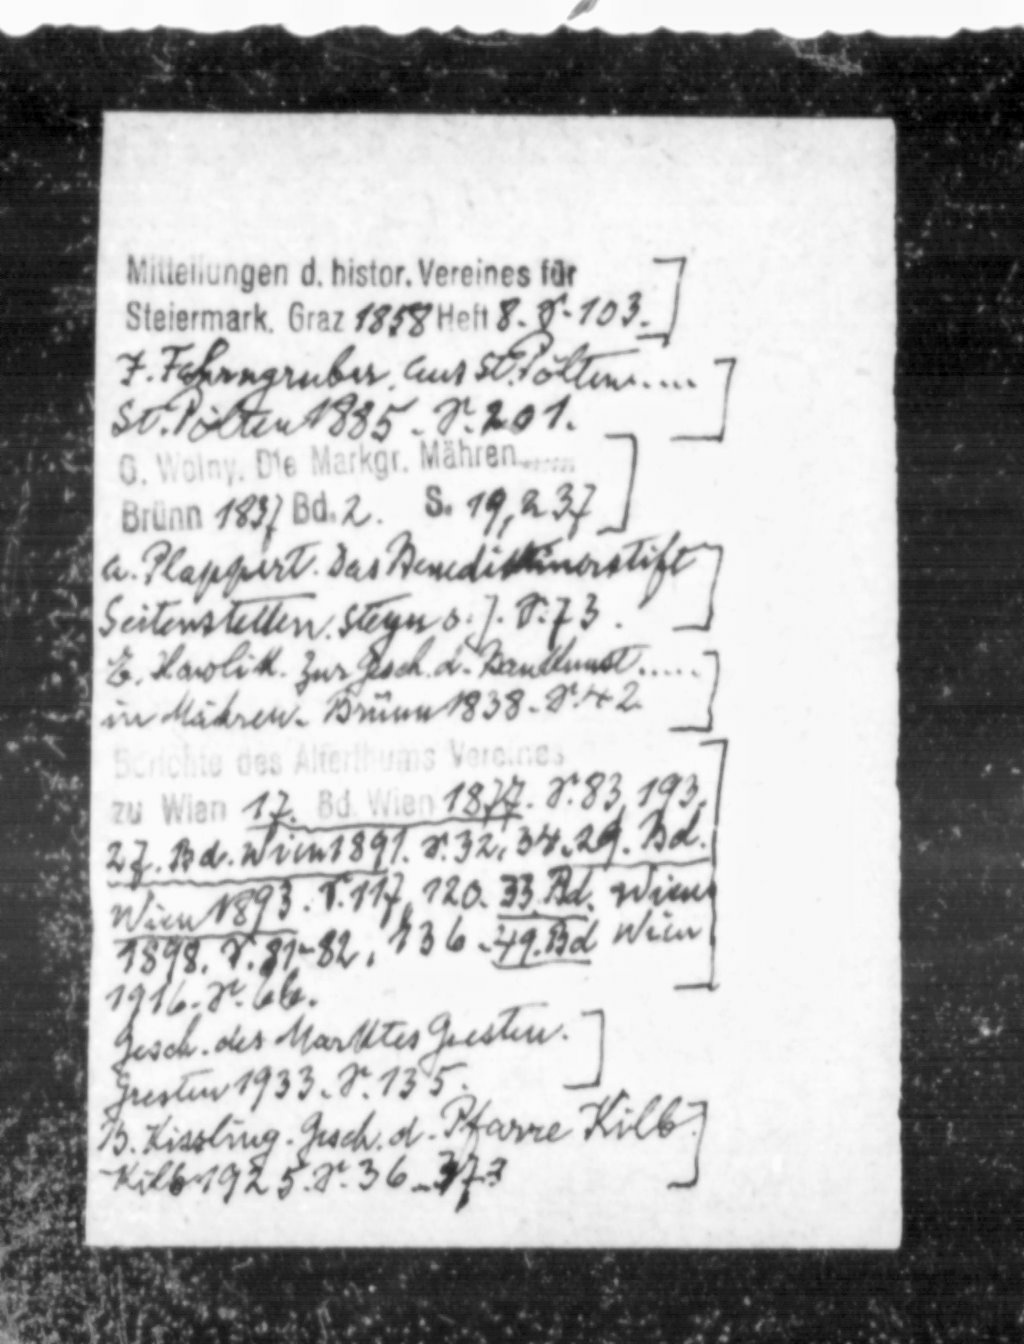 Mitteilungen d. histor. Vereines für
Steiermark. Graz 1858 Heft 8. S. 103.
F. Fahrngruber. Aus St. Pölten....
St. Pölten 1885. S. 201.
G. Wolny. Die Markgr. Mähren......
Brünn 1837 Bd. 2. S. 19, 237
A. Plappert. Das Benediktinerstift
Seitenstetten. Steyr o. J. S. 73.
E. Hawlik. Zur Gesch. d. Baukunst.....
in Mähren. Brünn 1838. S. 42.
Berichte des Alterthums Vereines
zu Wien 17. Bd. Wien 1877. S. 83, 193.
27. Bd. Wien 1891. S. 32, 34. 29. Bd.
Wien 1893. S. 117, 120. 33. Bd. Wien
1898. S. 81-82, 136. 49. Bd Wien
1916. S. 66.
Gesch. des Marktes Gresten.
Gresten 1933. S. 135.
B. Kissling. Gesch. d. Pfarre Kilb.
Kilb 1925. S. 36